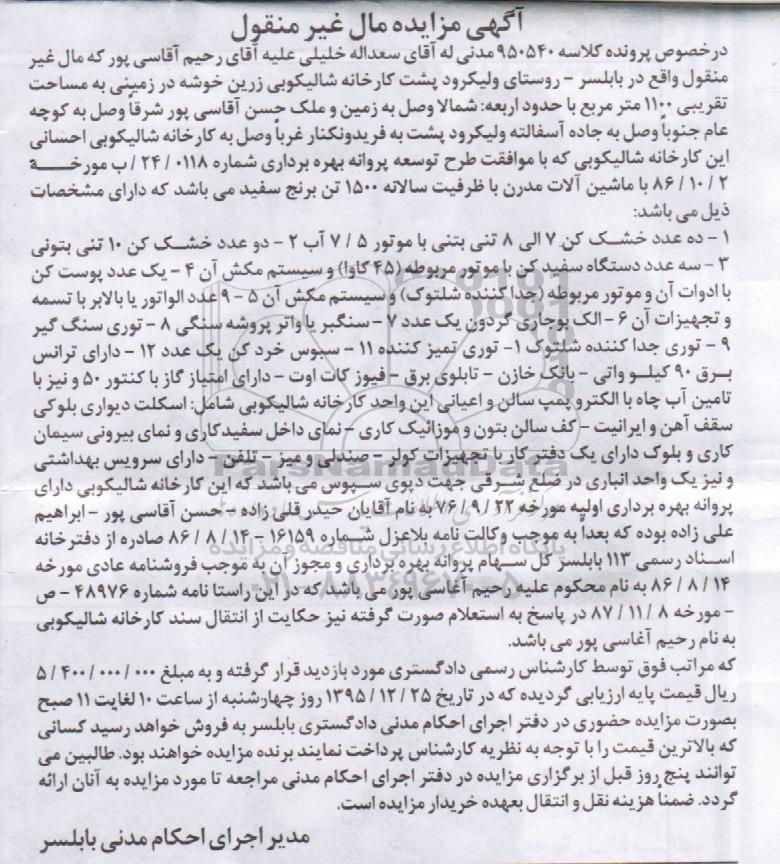 آگهی مزایده مال غیر منقول
درخصوص پرونده کلاسه ۹۵۰۵۴۰ مدنی له آقای سعداله خلیلی علیه آقای رحیم آقاسی پور که مال غیر
منقول واقع در بابلسر - روستای ولیکرود پشت کارخانه شالیکوبی زرین خوشه در زمینی به مساحت
تقریبی ۱۱۰۰ متر مربع با حدود اربعه: شمالا وصل به زمین و ملک حسن آقاسی پور شرقاً وصل به کوچه
عام جنوباً وصل به جاده آسفالته ولیکرود پشت به فریدونکنار غرباً وصل به کارخانه شالیکوبی احسانی
این کارخانه شالیکوبی که با موافقت طرح توسعه پروانه بهره برداری شماره ۰۱۱۸ / ۲۴ / ب مورخـــه
۲ / ۱۰ / ۸۶ با ماشین آلات مدرن با ظرفیت سالانه ۱۵۰۰ تن برنج سفید می باشد که دارای مشخصات
ذیل می باشد:
۱ - ده عدد خشـک کن ۷ الی ۸ تنی بتنی با موتور ۵ / ۷ آب ۲ - دو عدد خشـک کن ۱۰ تنی بتونی
۳ - سه عدد دستگاه سفید کن با موتور مربوطه (۴۵ کاوا) و سیستم مکش آن ۴ - یک عدد پوست کن
با ادوات آن و موتور مربوطه (جدا کننده شلتوک) و سیستم مکش آن ۵ - ۹ عدد الواتور یا بالابر با تسمه
و تجهیزات آن ۶ - الک بوجاری گردون یک عدد ۷ - سنگبر یا واتر پروشه سنگی ۸ - توری سنگ گیر
۹ - توری جدا کننده شلتوک ۱- توری تمیز کننده ۱۱ - سبوس خرد کن یک عدد ۱۲ - دارای ترانس
بـرق ۹۰ کیلـو واتی - بانک خازن - تابلوی برق - فیوز کات اوت - دارای امتیاز گاز با کنتور ۵۰ و نیز با
تامین آب چاه با الکترو پمپ سالن و اعیانی این واحد کارخانه شالیکوبی شامل: اسکلت دیواری بلوکی
سقف آهن و ایرانیت - کف سالن بتون و موزائیک کاری - نمای داخل سفیدکاری و نمای بیرونی سیمان
کاری و بلوک دارای یک دفتر کار با تجهیزات کولر - صندلی و میز - تلفن - دارای سرویس بهداشتی
و نیز یک واحد انباری در ضلع شـرقی جهت دپوی سبوس می باشد که این کارخانه شالیکوبی دارای
پروانه بهره برداری اولیه مورخه ۲۲ / ۹ / ۷۶ به نام آقایان حیدر قلی زاده - حسن آقاسی پور - ابراهیم
علی زاده بوده که بعداً به موجب وکالت نامه بلاعزل شـماره ۱۶۱۵۹ - ۱۴ / ۸ / ۸۶ صادره از دفترخانه
اسـناد رسمی ۱۱۳ بابلسر کل سـهام پروانه بهره برداری و مجوز آن به موجب فروشنامه عادی مورخه
۱۴ / ۸ / ۸۶ به نام محکوم علیه رحیم آغاسی پور می باشد که در این راستا نامه شماره ۴۸۹۷۶ - ص
- مورخه ۸ / ۱۱ / ۸۷ در پاسخ به استعلام صورت گرفته نیز حکایت از انتقال سند کارخانه شالیکوبی
به نام رحیم آغاسی پور می باشد.
که مراتب فوق توسط کارشناس رسمی دادگستری مورد بازدید قرار گرفته و به مبلغ ۰۰۰ / ۰۰۰ / ۴۰۰ / ۵
ریال قیمت پایه ارزیابی گردیده که در تاریخ ۲۵ / ۱۲ / ۱۳۹۵ روز چهارشنبه از ساعت ۱۰ لغایت ۱۱ صبح
بصورت مزایده حضوری در دفتر اجرای احکام مدنی دادگستری بابلسر به فروش خواهد رسید کسانی
که بالاترین قیمت را با توجه به نظریه کارشناس پرداخت نمایند برنده مزایده خواهند بود. طالبین می
توانند پنج روز قبل از برگزاری مزایده در دفتر اجرای احکام مدنی مراجعه تا مورد مزایده به آنان ارائه
گردد. ضمناً هزینه نقل و انتقال بعهده خریدار مزایده است.
مدیر اجرای احکام مدنی بابلسر
ParsNamadData
پایگاه اطلاع رسانی مناقصه و مزایده